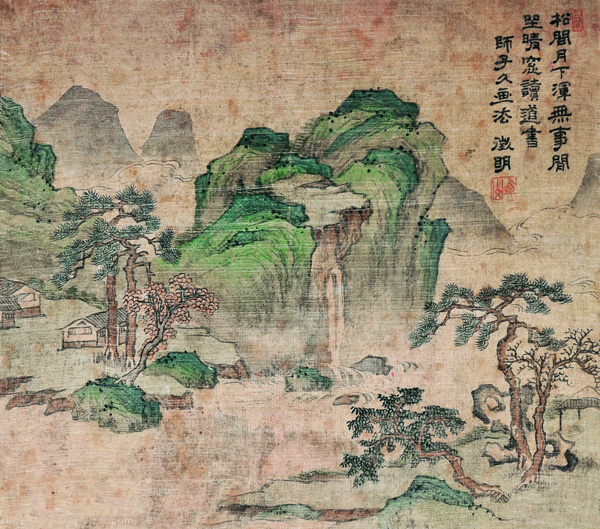 松間月下渾無事閒
坐晴窓讀道書
師子久画法 徵明